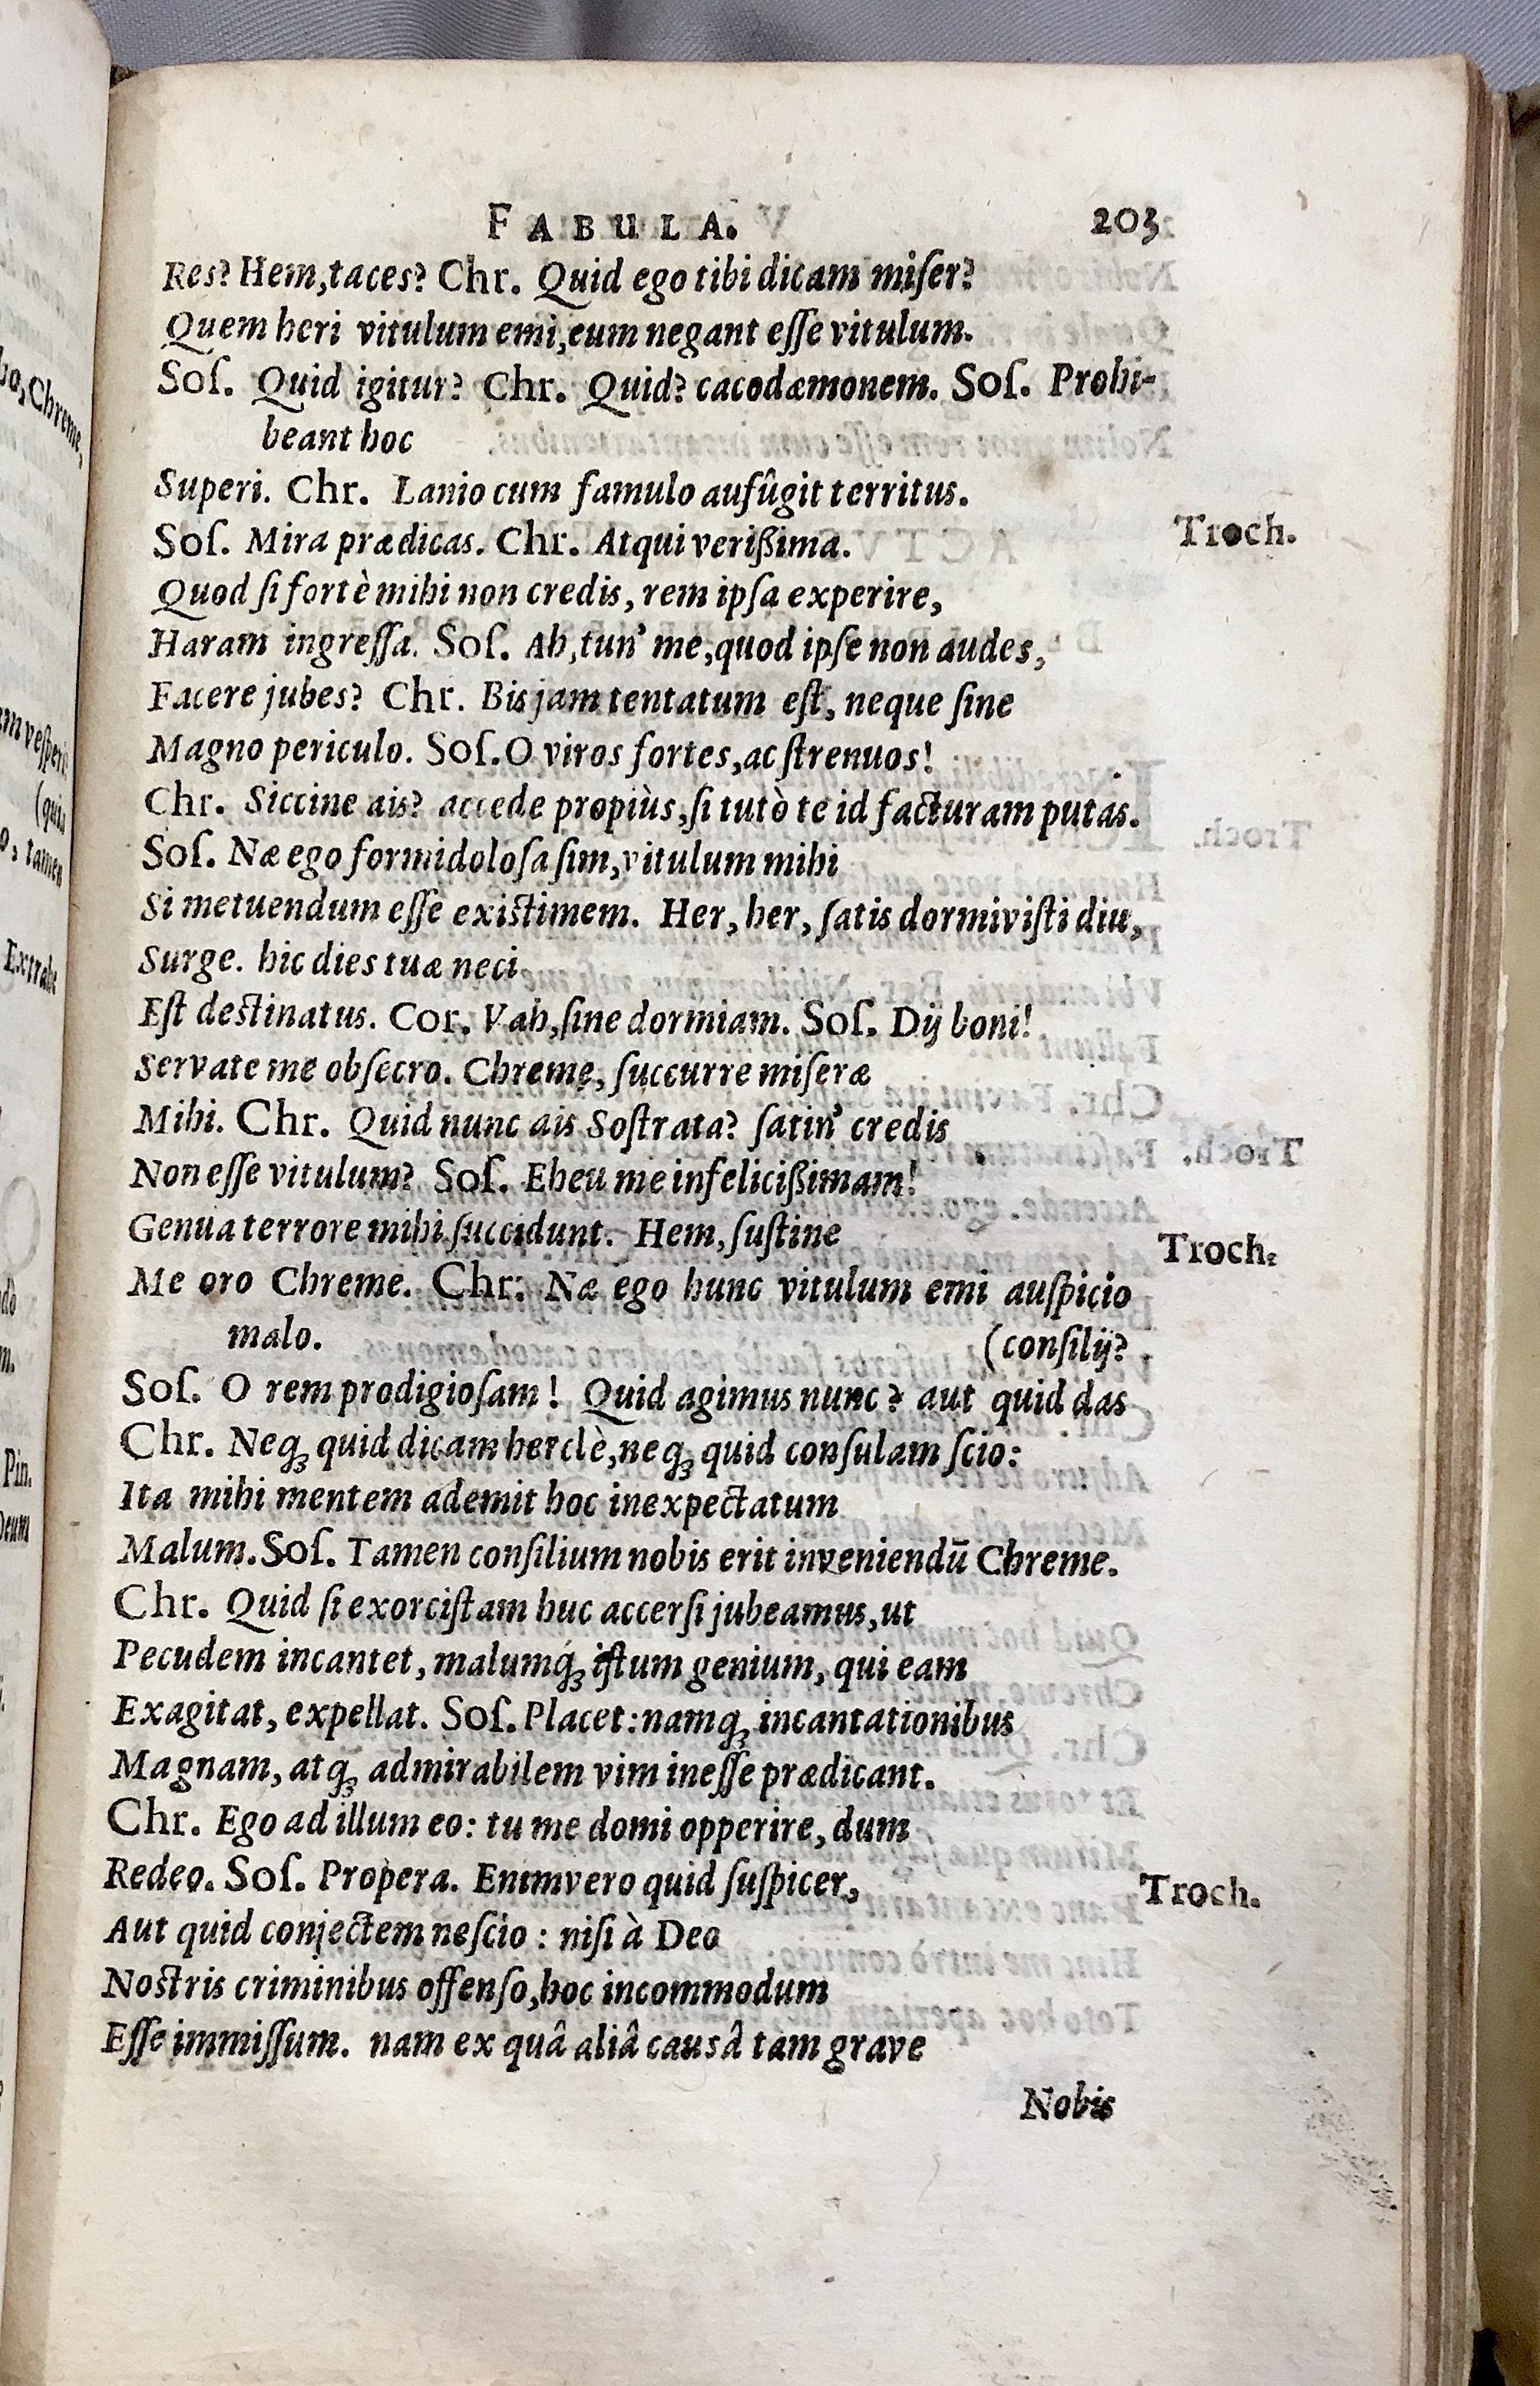 FABULA. 203
Res? Hem, taces? Chr. Quid ego tibi dicam miſer?
Quem heri vitulum emi, eum negant eſſe vitulum.
Soſ. Quid igitur? Chr. Quid? cacodæmonem. Soſ. Prohi-
beant hoc
Superi. Chr. Lanio cum famulo aufûgit territus.
Soſ. Mira prædicas. Chr. Atqui verißima. Troch.
Quod ſi fortè mihi non credis, rem ipſa experire,
Haram ingreſſa. Soſ. Ah, tun' me, quod ipſe non audes,
Facere jubes? Chr. Bis jam tentatum eſt, neque ſine
Magno periculo. Soſ. O viros fortes, ac ſtrenuos!
Chr. Siccine ais? accede propiùs, ſi tutò te id facturam putas.
Soſ. Næ ego formidoloſa ſim, vitulum mihi
Si metuendum eſſe exiſtimem. Her, her, ſatis dormiviſti diu,
Surge. hic dies tuæ neci
Eſt deſtinatus. Cor. Vah, ſine dormiam. Soſ. Dij boni!
Servate me obſecro. Chreme, ſuccurre miſeræ
Mihi. Chr. Quid nunc ais Soſtrata? ſatin' credis
Non eſſe vitulum? Soſ. Eheu me infelicißimam!
Genua terrore mihi ſuccidunt. Hem, ſuſtine Troch.
Me oro Chreme. Chr: Næ ego hunc vitulum emi auſpicio
malo. (conſilij?
Soſ. O rem prodigioſam! Quid agimus nunc? aut quid das
Chr. Neqꝫ quid dicam herclè, neqꝫ quid conſulam ſcio:
Ita mihi mentem ademit hoc inexpectatum
Malum. Soſ. Tamen conſilium nobis erit inveniendū Chreme.
Chr. Quid ſi exorciſtam huc accerſi jubeamus, ut
Pecudem incantet, malumq́ꝫ iſtum genium, qui eam
Exagitat, expellat. Soſ. Placet: namqꝫ incantationibus
Magnam, atqꝫ admirabilem vim ineſſe prædicant.
Chr. Ego ad illum eo: tu me domi opperire, dum
Redeo. Soſ. Propera. Enimvero quid ſuſpicer, Troch.
Aut quid conjectem neſcio: niſi à Deo
Noſtris criminibus offenſo, hoc incommodum
Eſſe immiſſum. nam ex quâ aliâ causâ tam grave
Nobis